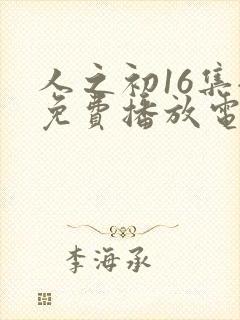 人之初16集
免费播放电
李海承